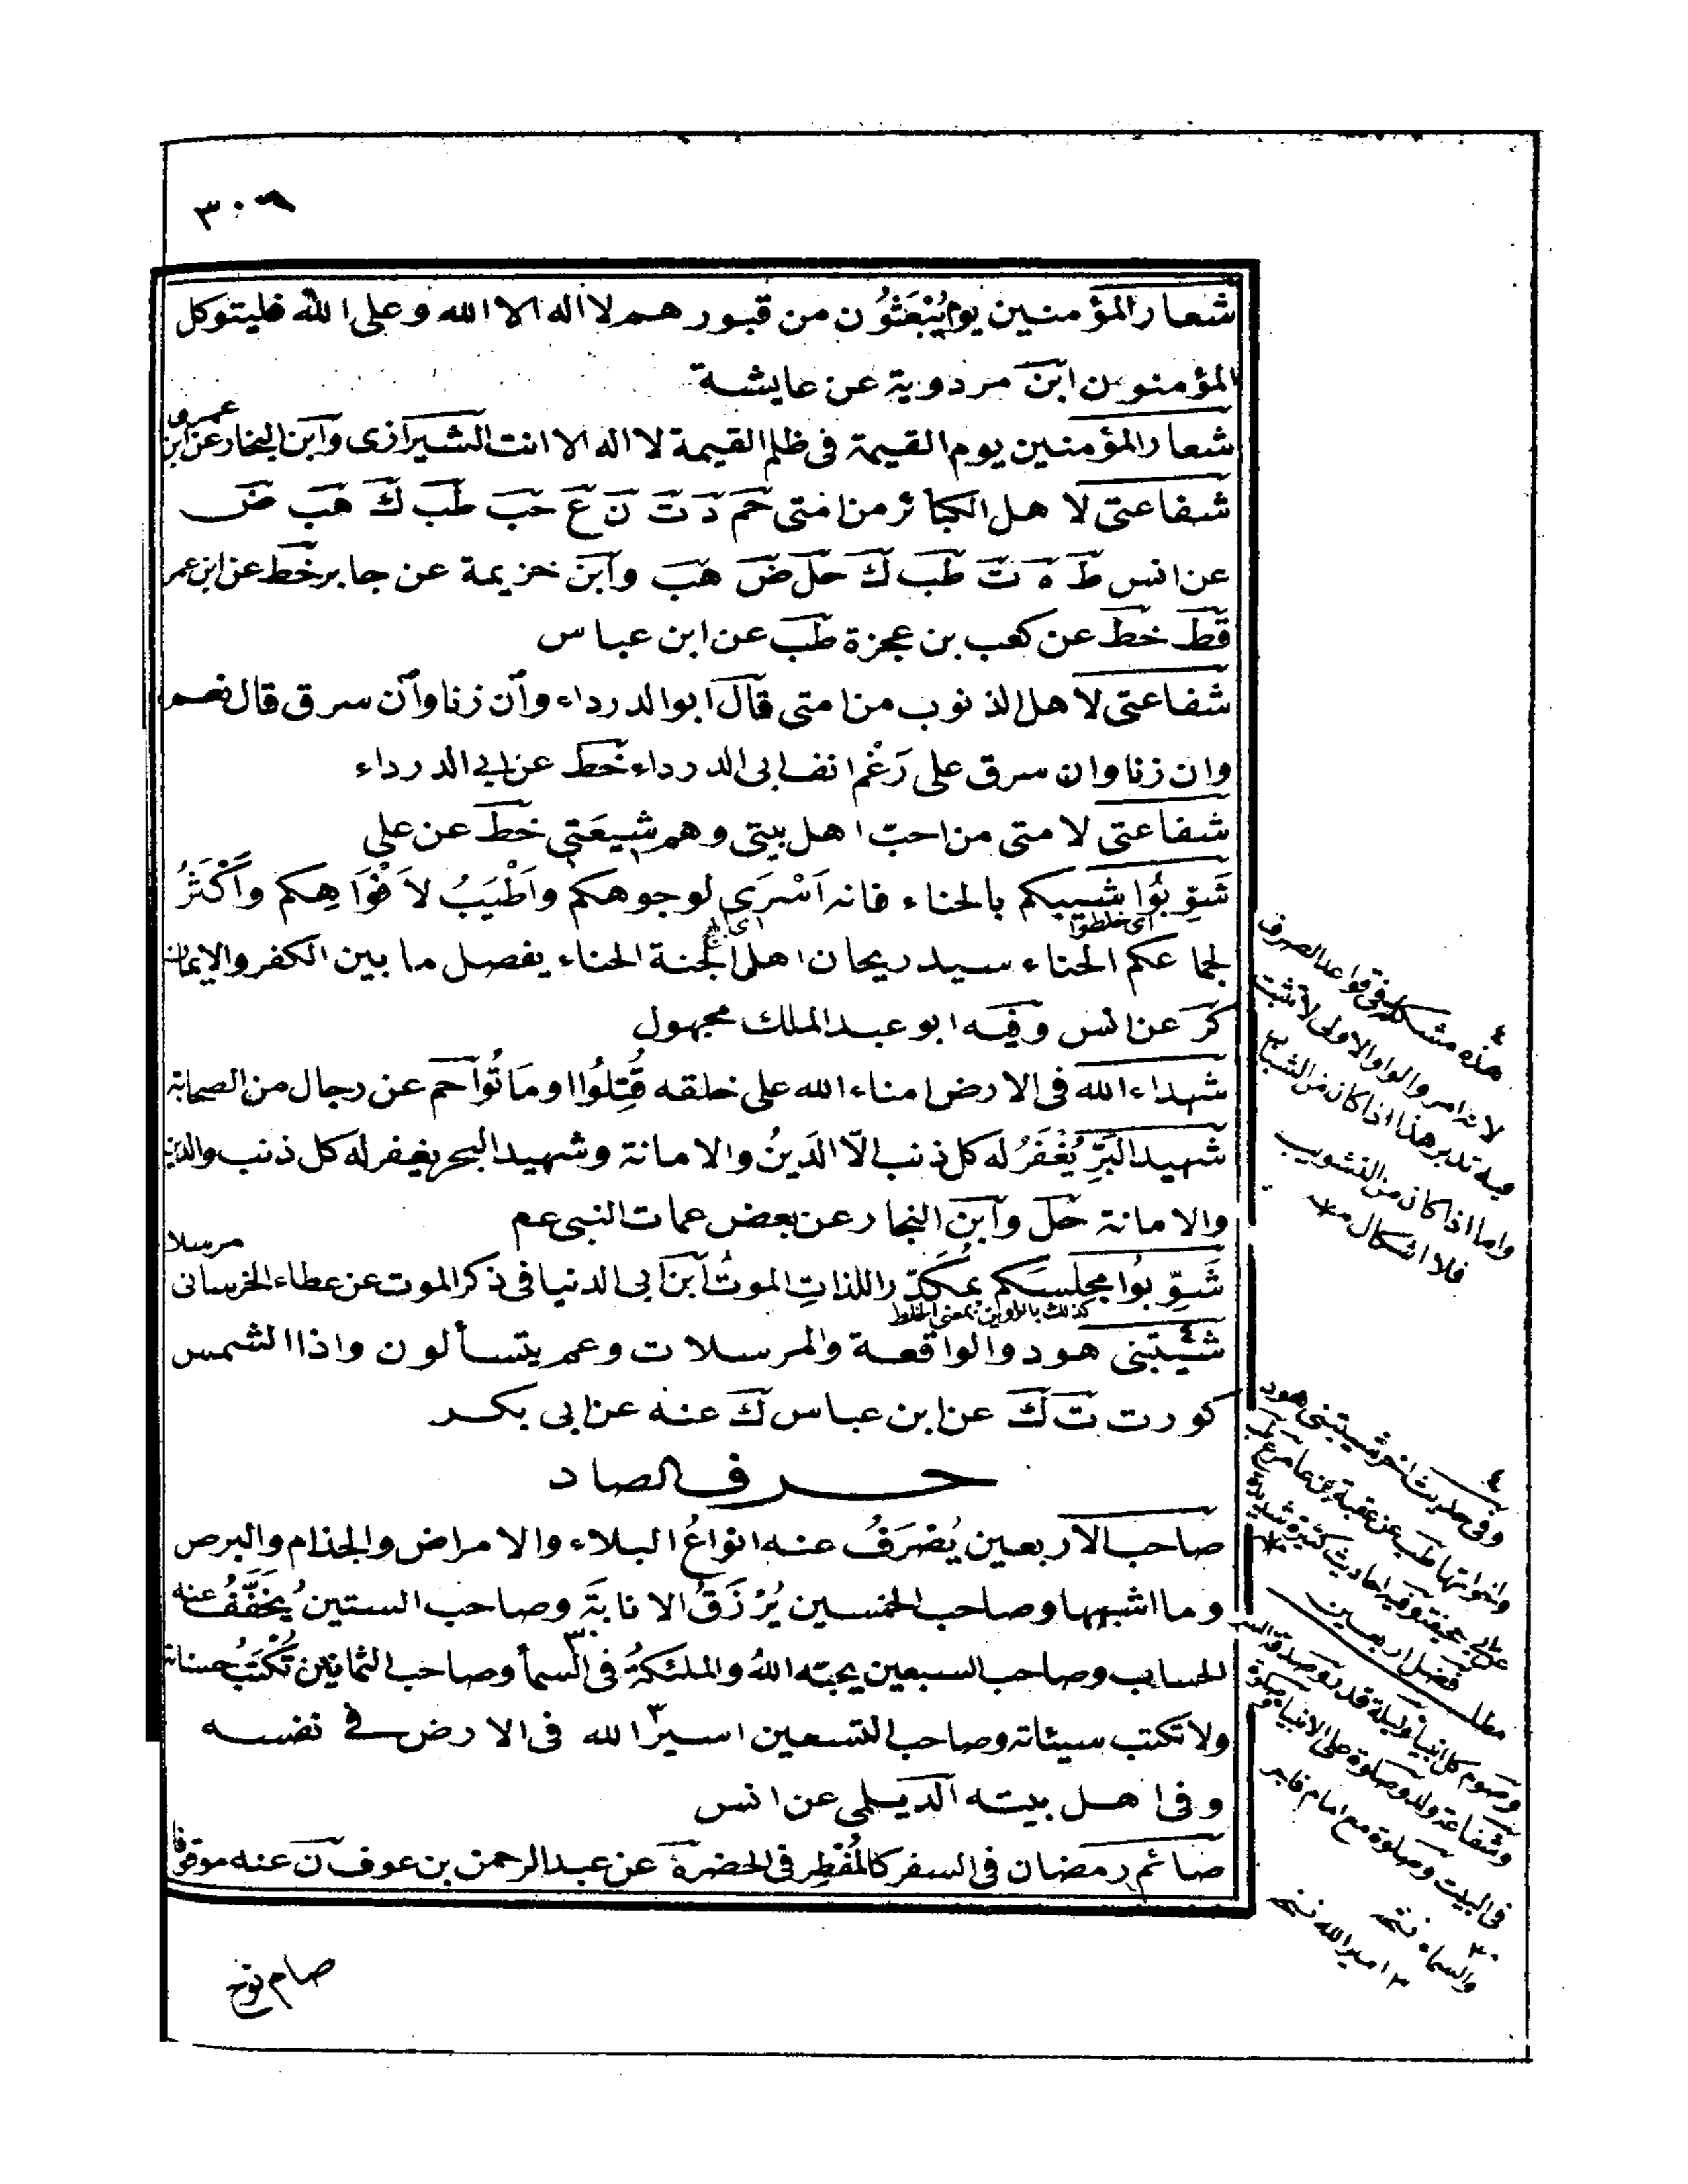 ٣٠٦
شعار المؤمنين يوم يُبْعَثُون من قبورهم لا اله الا الله وعلى الله فليتوكل
المؤمنون ابن مردوية عن عايشة
شعار المؤمنين يوم القيمة فى ظلم القيمة لا اله الا انت الشيرازى وابن النجار عن ابن عمرو
شفاعتى لاهل الكبائر من امتى حم د ت ن ع حب طب ك هب ض
عن انس ط ه ت طب ك حل ض هب وابن خزيمة عن جابر خط عن ابن عمر
قط خط عن كعب بن عجزة طب عن ابن عباس
شفاعتى لاهل الذنوب من امتى قال ابو الدرداء وان زنا وان سرق قال نعم
وان زنا وان سرق على رَغْم انف ابى الدرداء خط عن ابى الدرداء
شفاعتى لامتى من احبّ اهل بيتى وهم شِيعَتِى خط عن على
شَوِّبُوا شيبكم بالحناء فانه اَسْرَى لوجوهكم واَطْيَبُ لاَفْوَاهِكم واَكْثَرُ
اى خلطوا
لجماعكم الحناء سيد ريحان اهل الجنة الحناء يفصل ما بين الكفر والايمان
كر عن انس وفيه ابو عبد الملك مجهول
شهداء الله فى الارض امناء الله على خلقه قُتِلُوا او مَاتُوا حم عن رجال من الصحابة
شهيد البَرِّ يُغْفَرُ له كل ذنب الاّ الدَينُ والامانة وشهيد البحر يغفر له كل ذنب والدين
والامانة حل وابن النجار عن بعض عمات النبى عم
شَوِّبُوا مجلسكم بمُكَدِّر اللذاتِ الموتُ ابن ابى الدنيا فى ذكر الموت عن عطاء الخرسانى مرسلا
كذلك بالواوين بمعنى الخلط
شيّبتنى هود والواقعة والمرسلات وعم يتسألون واذا الشمس
كورت ت ك عن ابن عباس ك عنه عن ابى بكر
حرف الصاد
صاحب الاربعين يُصْرَفُ عنه انواعُ البلاء والامراض والجذام والبرص
وما اشبهها وصاحب الخمسين يُرْزَقُ الانابَةَ وصاحب الستين يُخَفَّفُ عنه
الحساب وصاحب السبعين يحبّه اللهُ والملئكةُ فى السمأ وصاحب الثمانين تُكْتَبُ حسناته
ولا تكتب سيئاته وصاحب التسعين اسير الله فى الارض فى نفسه
وفى اهل بيته الديلمى عن انس
صائم رمضان فى السفر كالمُفْطِر فى الحضر ه عن عبد الرحمن بن عوف ن عنه موقوفا
صام نوح
٤
هذه مشكلة فى قواعد الصرف
لانه امر والواو الاولى لا تثبت
فيه تدبر هذا اذا كان من الشباب
واما اذا كان من التشويب
فلا اشكال
٤
وفى حديث اخر شيبتنى هود
واخواتها طب عن عقبة بن عامر
وفيه احاديث كثيرة
مطلب فضل اربعين
وصلوة مع امام فاجر
فى البيت
والسماء نسخه
٣ امير الله نسخه